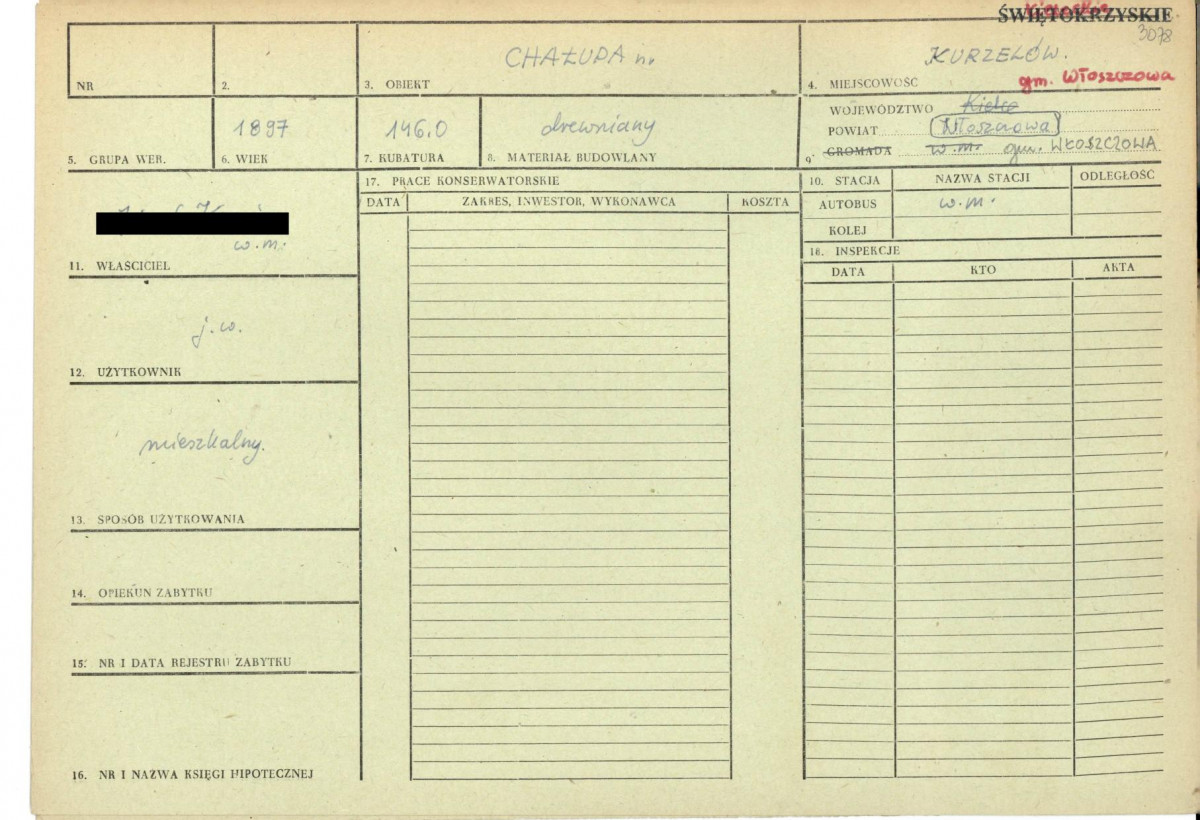 ŚWIĘTOKRZYSKIE
3078
NR
2.
CHAŁUPA n.
3. OBIEKT
KURZELÓW.
4. MIEJSCOWOŚĆ
gm. Włoszczowa
1897
6. WIEK
146.0
7. KUBATURA
drewniany
8. MATERIAŁ BUDOWLANY
WOJEWÓDZTWO Kielce
POWIAT Włoszczowa
9. GROMADA w.m. gm. WŁOSZCZOWA
5. GRUPA WER.
17. PRACE KONSERWATORSKIE
DATA ZAKRES, INWESTOR, WYKONAWCA KOSZTA
10. STACJA NAZWA STACJI ODLEGŁOŚĆ
AUTOBUS w.m.
KOLEJ
18. INSPEKCJE
DATA KTO AKTA
w.m.
11. WŁAŚCICIEL
j.w.
12. UŻYTKOWNIK
mieszkalny.
13. SPOSÓB UŻYTKOWANIA
14. OPIEKUN ZABYTKU
15. NR I DATA REJESTRU ZABYTKU
16. NR I NAZWA KSIĘGI HIPOTECZNEJ